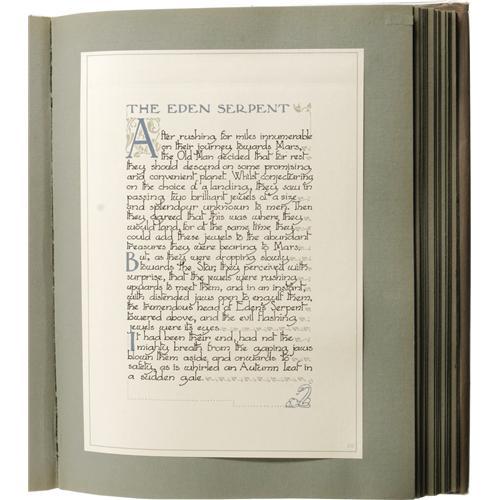 THE EDEN SERPENT
After rushing for miles innumerable
on their journey towards Mars,
the Old Man decided that for rest
they should descend on some promising
and convenient planet. Whilst conjecturing
on the choice of a landing, they saw in
passing, two brilliant jewels of a size
and splendour unknown to men. Then
they agreed that this was where they
would land, for at the same time they
could add these jewels to the abundant
treasures they were bearing to Mars.
But, as they were dropping slowly
towards the Star, they perceived with
surprise, that the jewels were rushing
upwards to meet them, and in an instant,
with distended jaws open to engulf them,
the tremendous head of Eden's Serpent
towered above, and the evil flashing
jewels were its eyes.
It had been their end, had not the
mighty breath from the gaping jaws
blown them aside, and onwards to
safety, as is whirled an Autumn leaf in
a sudden gale.